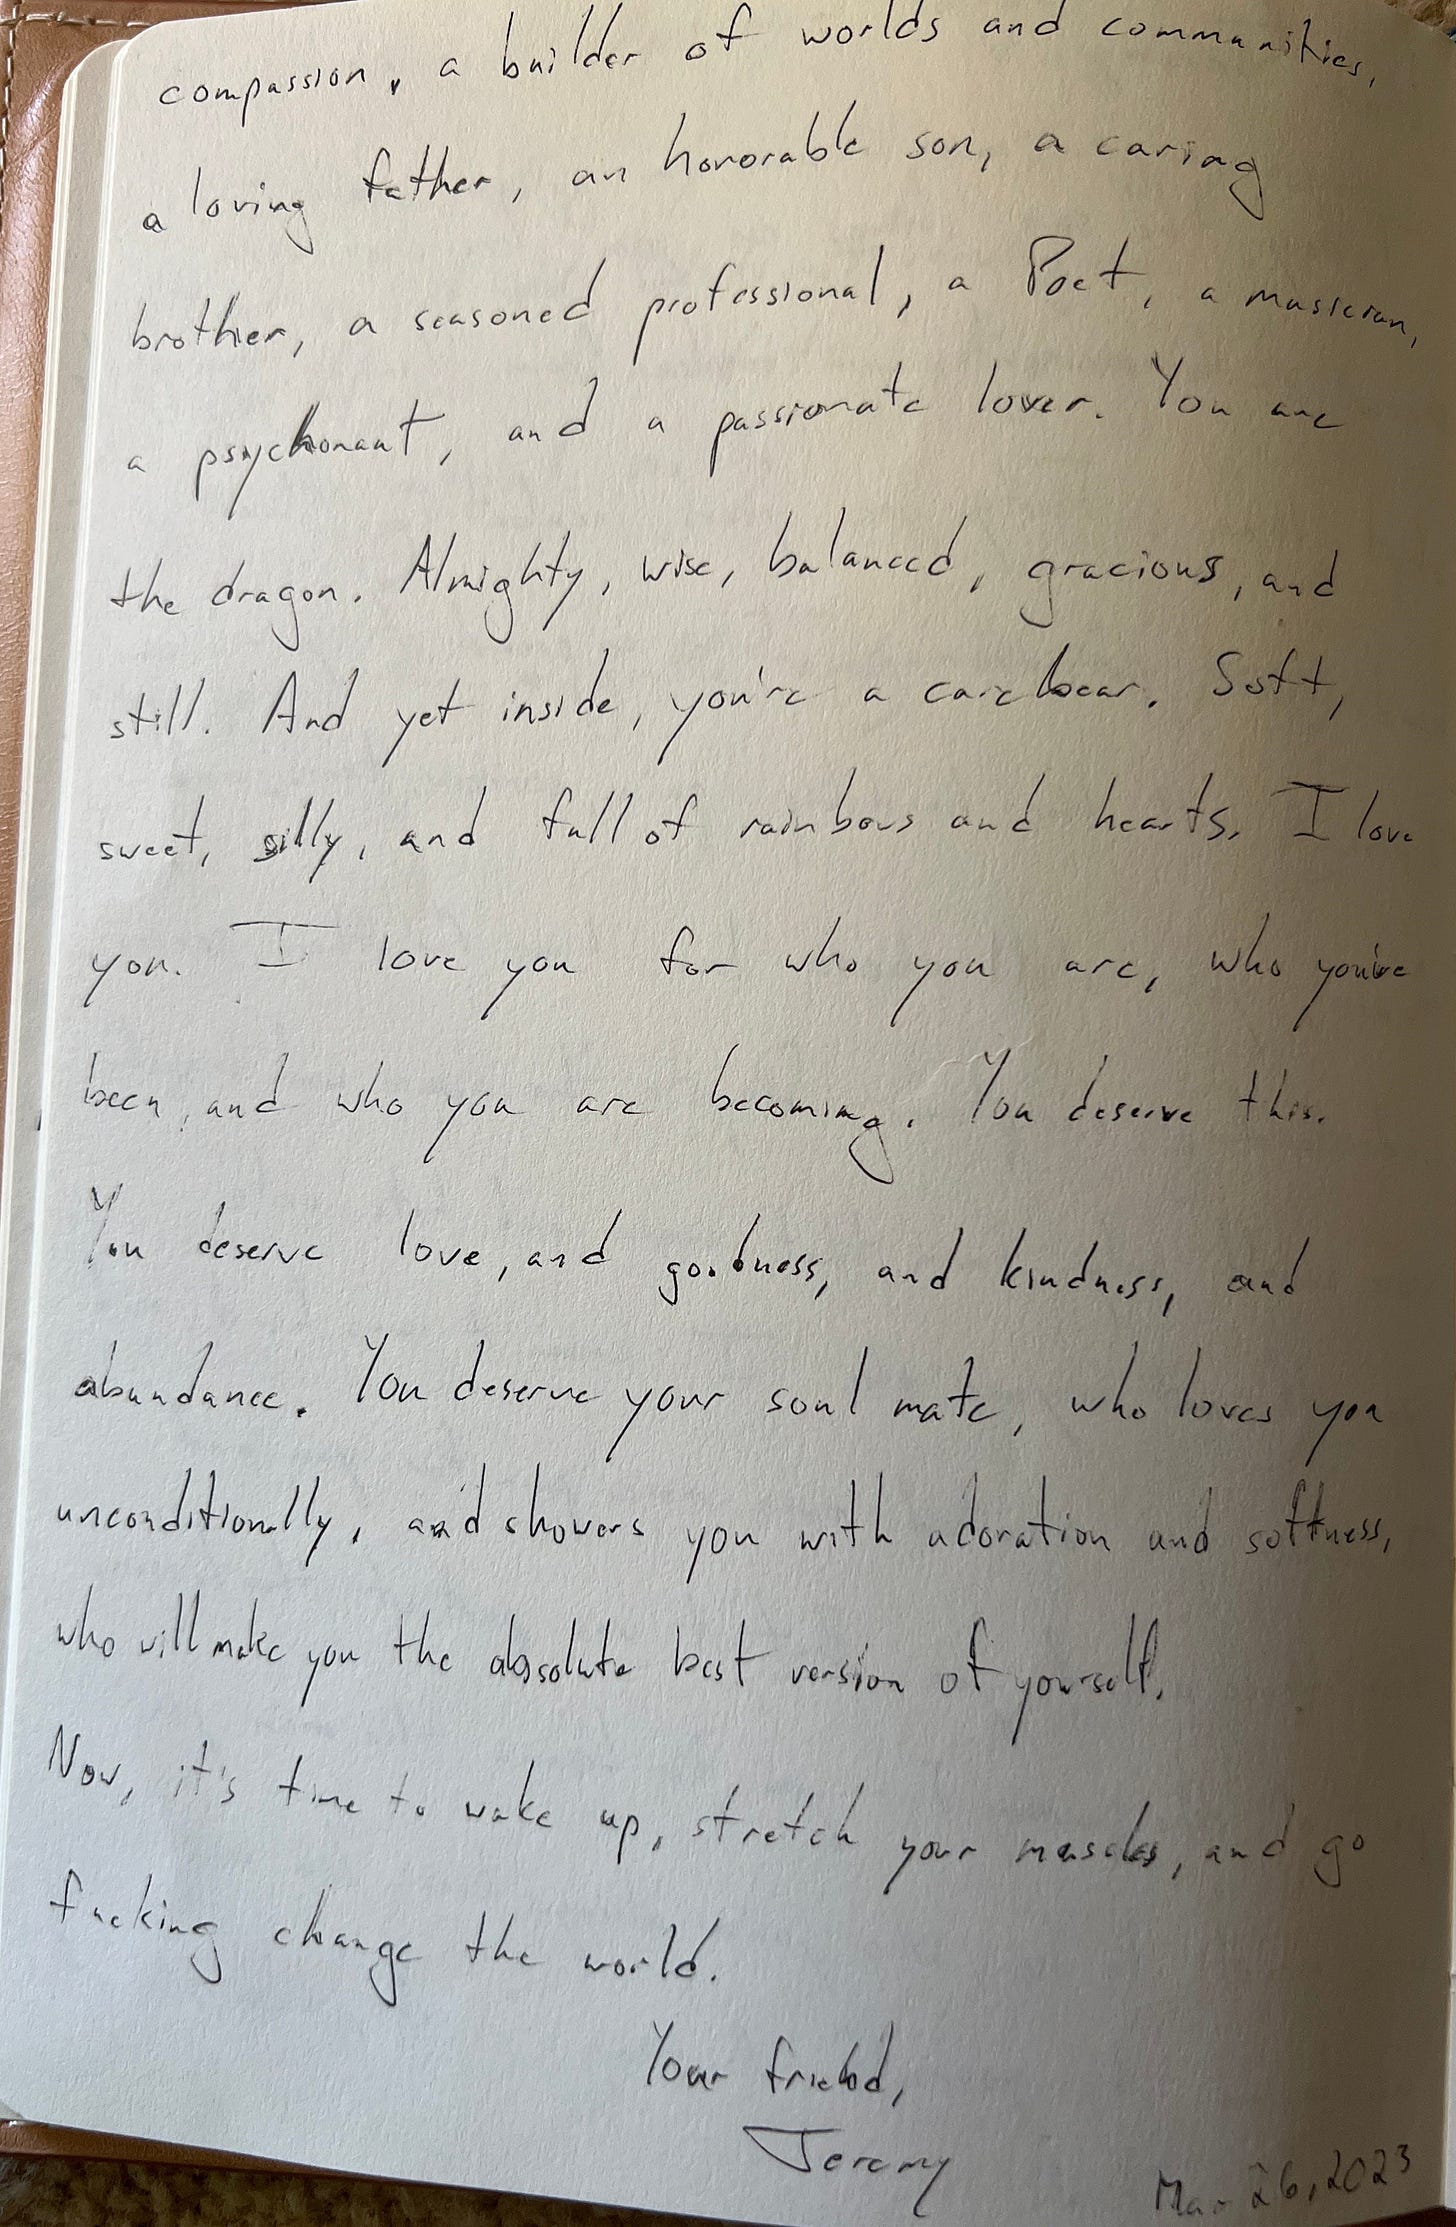 compassion, a builder of worlds and communities,
a loving father, an honorable son, a caring
brother, a seasoned professional, a Poet, a musician,
a psychonaut, and a passionate lover. You are
the dragon. Almighty, wise, balanced, gracious, and
still. And yet inside, you're a carebear. Soft,
sweet, silly, and full of rainbows and hearts. I love
you. I love you for who you are, who you've
been, and who you are becoming. You deserve this.
You deserve love, and goodness, and kindness, and
abundance. You deserve your soul mate, who loves you
unconditionally, and showers you with adoration and softness,
who will make you the absolute best version of yourself.
Now, it's time to wake up, stretch your muscles, and go
fucking change the world.
Your friend,
Jeremy
Mar 26, 2023